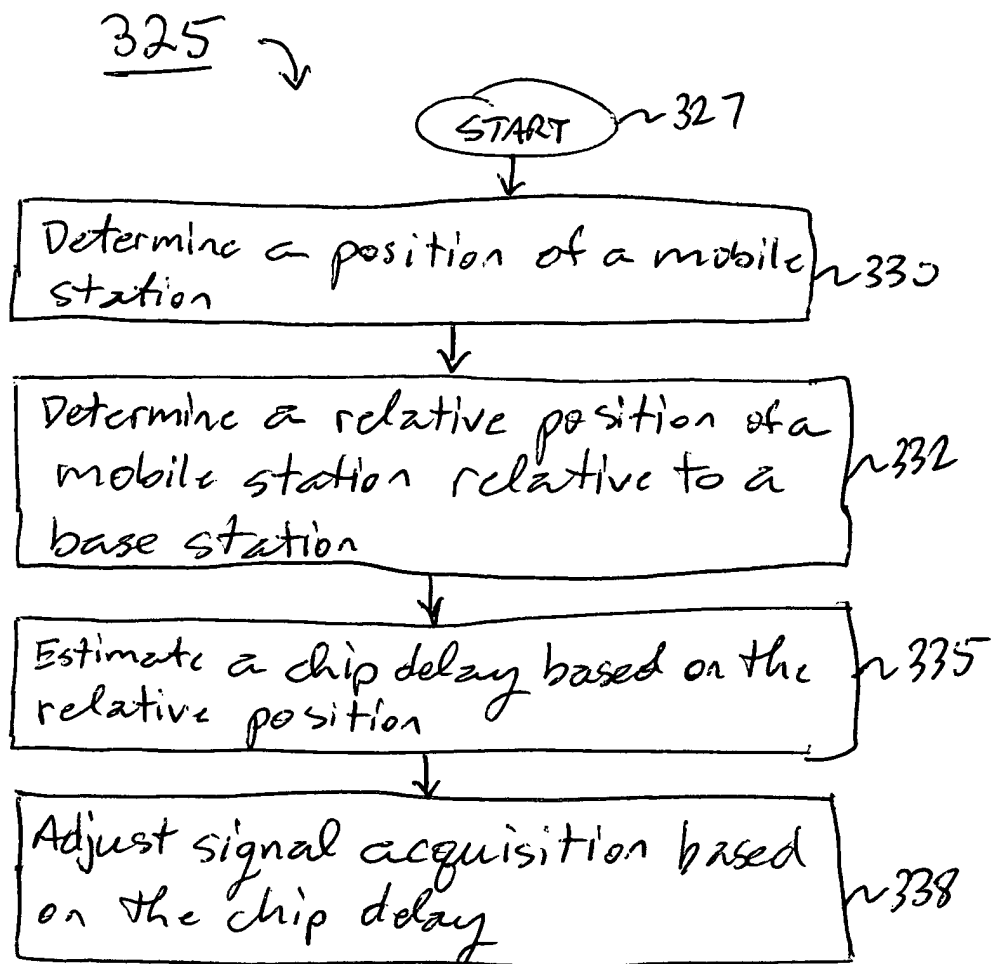 325
START ~327
Determine a position of a mobile ~330
station
Determine a relative position of a
mobile station relative to a ~332
base station
Estimate a chip delay based on the ~335
relative position
Adjust signal acquisition based
on the chip delay ~338